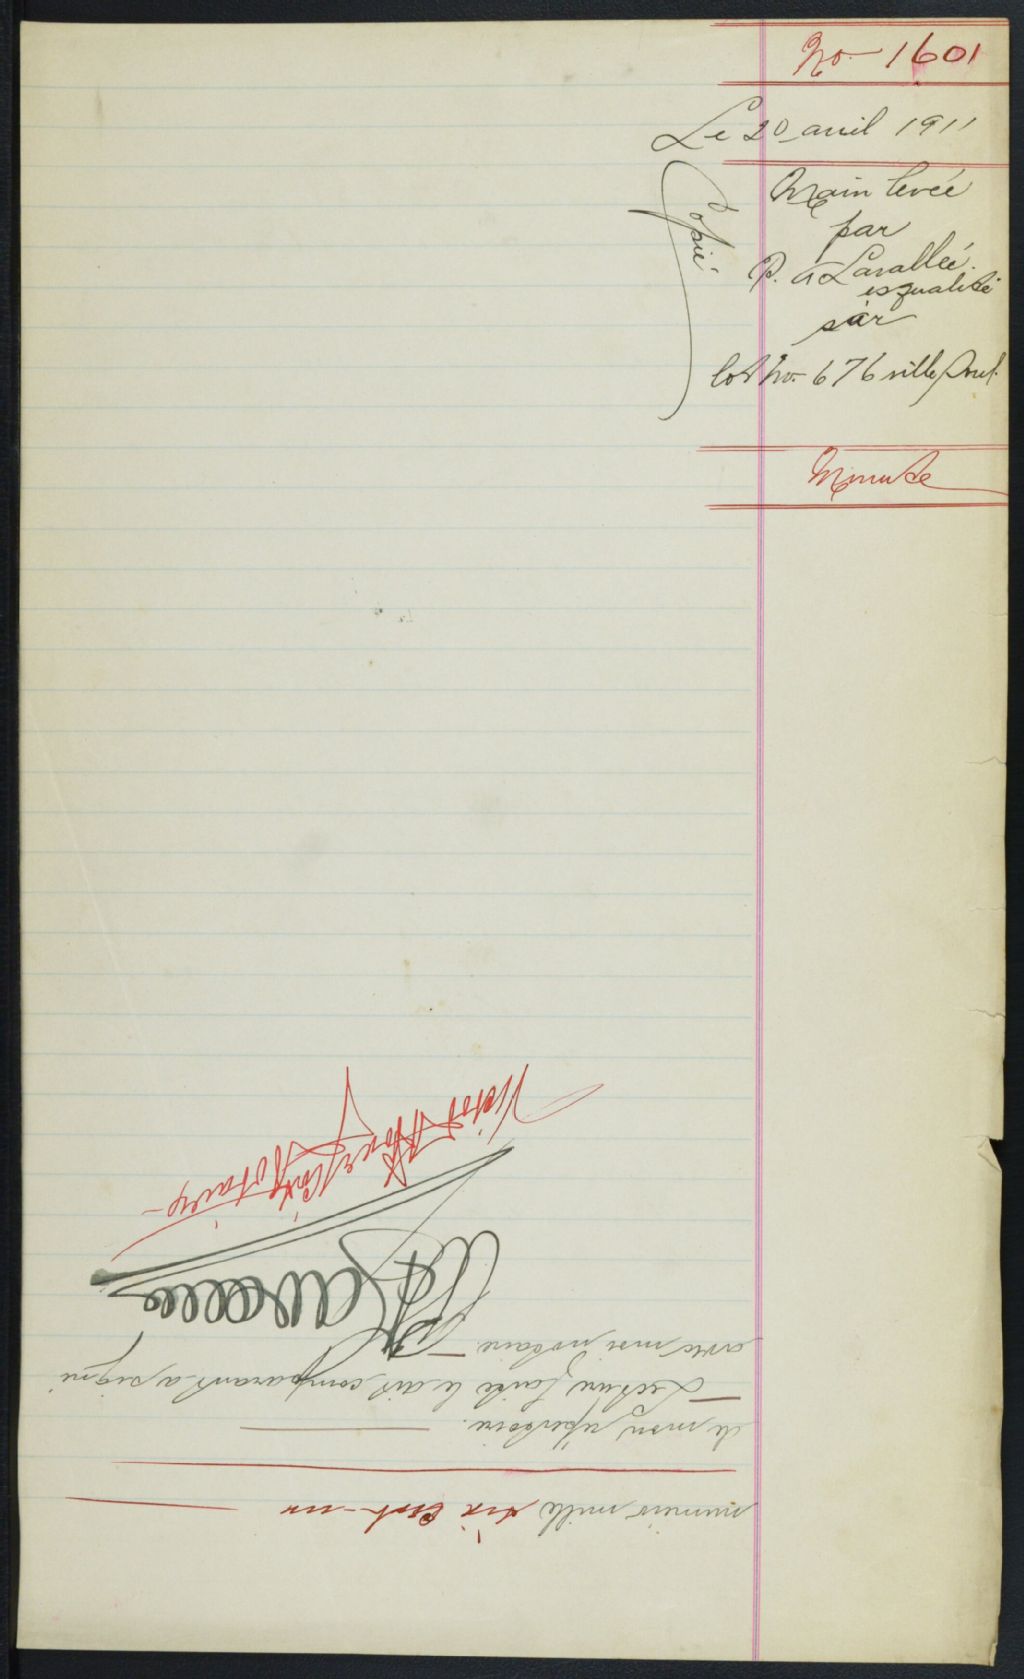 No. 1601
Le 20 avril 1911
Copié
Main levée
par
P. A Lavallée.
esqualité
sur
lot No. 676 ville Sorel
Minute
numéro mille six cent-un
de mon répertoire.
Lecture faite le dit comparant a signé
avec moi notaire.
PA Lavallée
Notaire